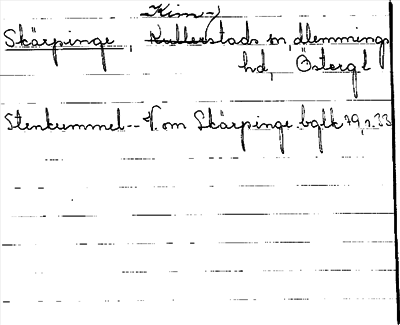 Kim-
Skärpinge, Kullerstads sn, Memmings
hd, Östergl
Stenkummel -- V. om Skärpinge. bglk 79, s. 33